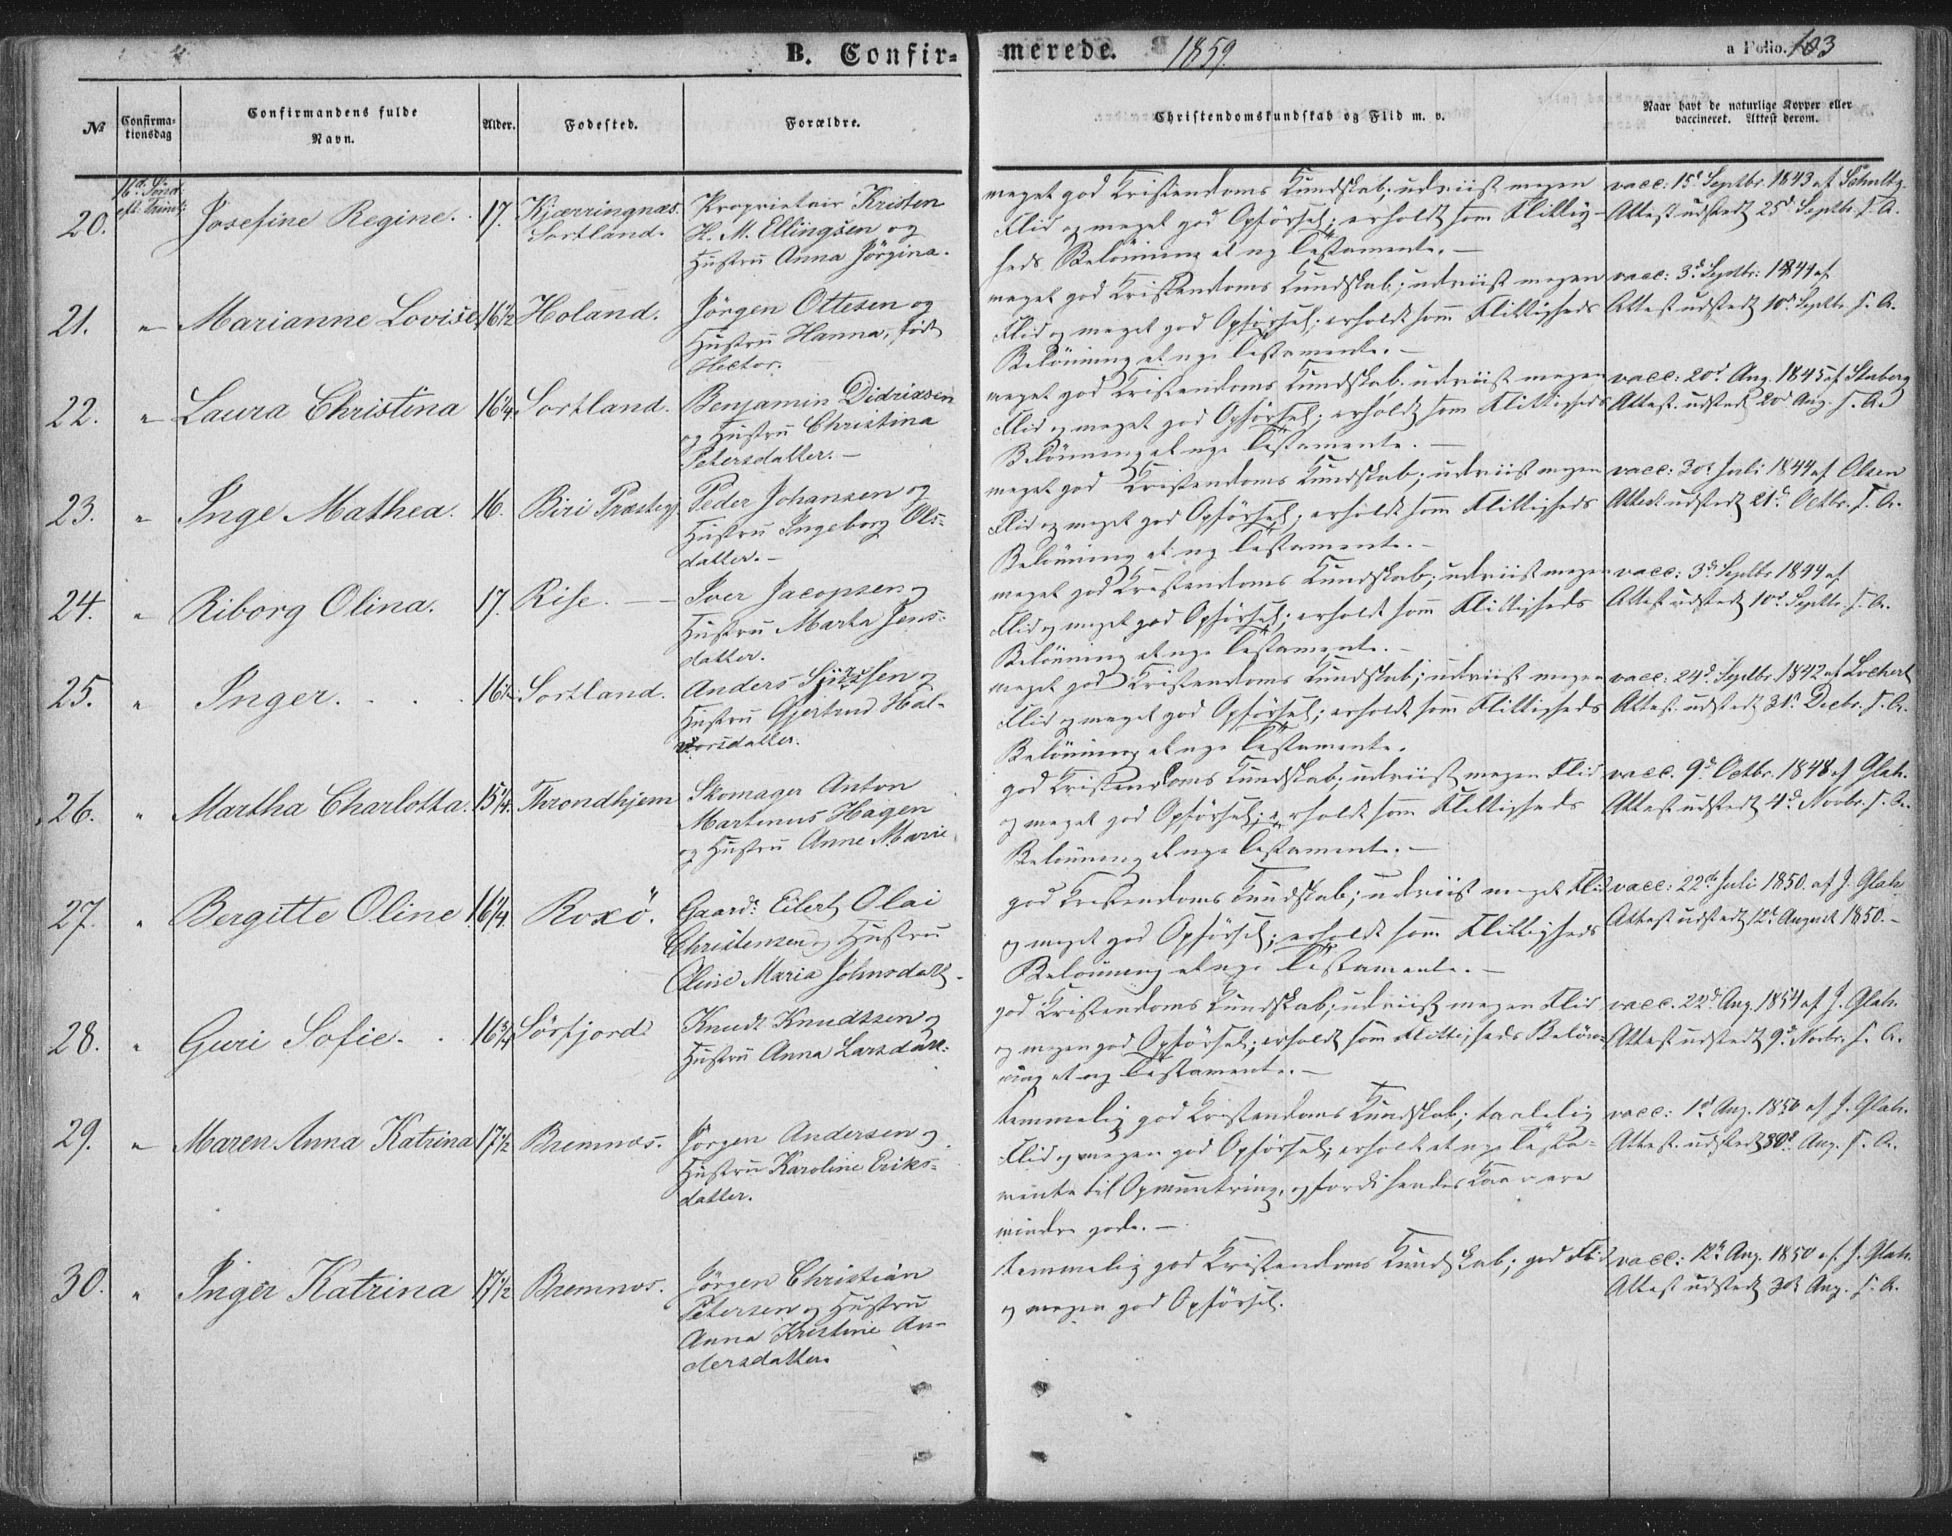 B. Confir=
merede. 1859.
a Folio. 103
№
Confirma-
tionsdag
Confirmandens fulde
Navn.
Alder.
Fødested.
Forældre.
Christendomskundskab og Flid m. v.
Naar havt de naturlige Kopper eller
vaccineret. Attest derom.
16d. Sønd:
eft. Trinit:
20. Josefine Regine. 17. Kjærringnæs.
Sortland.
Proprietair Kristen
H. M. Ellingsen og
Hustru Anna Jörgina.
meget god Kristendoms Kundskab; udviist megen
Flid og meget god Opførsel; erholdt som Flittig-
heds Belönning et ny Testamente. —
vacc: 15d Septbr. 1843 af Schultz.
Attest udstedt 25d Septbr. s. A.
21. " Marianne Lovise 16½ Holand.
Jörgen Ottesen og
Hustru Hanna, födt
Hector.
meget god Kristendoms Kundskab; udviist megen
Flid og meget god Opførsel; erholdt som Flittigheds
Belönning et nyt Testamente. —
vacc: 3d Septbr: 1844 af
Attest udstedt 10d Septbr. s. A.
22. " Laura Christina 16¼ Sortland.
Benjamin Didriksen
og Hustru Christina
Petersdatter. —
meget god Kristendoms Kundskab. udviist megen
Flid og meget god Opførsel; erholdt som Flittigheds
Belönning et nyt Testamente. —
vacc: 20d Aug. 1845 af Staberg
Attest. udstedt 20d Aug. s. A.
23. " Inge Mathea. 16. Biri Præstegj.
Peder Johansen og
Hustru Ingeborg Ols-
datter. —
meget god Kristendoms Kundskab; udviist megen
Flid og meget god Opførsel; erholdt som Flittigheds
Belönning et ny Testamente. —
vacc: 30d Juli 1844 af Olsen
Attest udstedt 21d Octbr. s. A.
24. " Riborg Olina. 17. Rise. —
Iver Jacopsen og
Hustru Marta Jens-
datter.
meget god Kristendoms Kundskab; udviist megen
Flid og meget god Opførsel; erholdt som Flittigheds
Belönning et nyt Testamente. —
vacc: 3d Septbr 1844 af
Attest udstedt 10d Septbr. s. A.
25. " Inger. 16½ Sortland.
Anders
Hustru Gjertrud Hal-
vorsdatter.
meget god Kristendoms Kundskab; udviist megen
Flid og meget god Opførsel; erholdt som Flittigheds
Belönning et nyt Testamente.
vacc: 24d Septbr 1842 af Lochert
Attest. udstedt 31d Decbr. s. A.
26. " Martha Charlotta. 15¼. Throndhjem
Skomager Anton
Martinus Hagen
og Hustru Anne Marie
god Kristendoms Kundskab; udviist megen Flid
og meget god Opførsel; erholdt som Flittigheds
Belönning et nyt Testamente. —
vacc. 9d Octbr. 1848 af Glah.
Attest udstedt 4d Novbr. s. A.
27. " Bergitte Oline 16¼ Roxö.
Gaardr. Eilert Olai
Christensen og Hustru
Oline Maria Johnsdatr.
god Kristendoms Kundskab; udviist meget Flid
og meget god Opførsel; erholdt som Flittigheds
Belönning et nyt Testamente. —
vacc: 22de Juli 1850. af J. Glah.
Attest udstedt 12d August 1850. —
28. " Guri Sofie. 16¾ Sörfjord
Knudt Knudtsen og
Hustru Anna Larsdatr.
god Kristendoms Kundskab; udviist megen Flid
og megen god Opførsel; erholdt som Flittigheds Belön-
ning et ny Testamente. —
vacc. 22d Aug. 1854 af J. Glah.
Attest udstedt 9d Novbr. s. A.
29. " Maren Anna Katrina 17½ Bremnes.
Jörgen Andersen og
Hustru Karoline Eriks-
datter.
temmelig god Kristendoms Kundskab; taalelig
Flid og megen god Opførsel; erholdt et nyt Testa-
mente til Opmuntring, og fordi hendes Kaar ere
mindre gode. —
vacc: 1d Aug. 1850 af J. Glah.
Attest. udstedt 30d Aug. s. A.
30. " Inger Katrina 17½ Bremnes.
Jörgen Christian
Petersen og Hustru
Anna Kristine An-
dersdatter.
temmelig god Kristendoms Kundskab; god Flid
og megen god Opførsel.
vacc: 12te Aug. 1850 af J. Glah.
Attest udstedt 30d Aug. s. A.